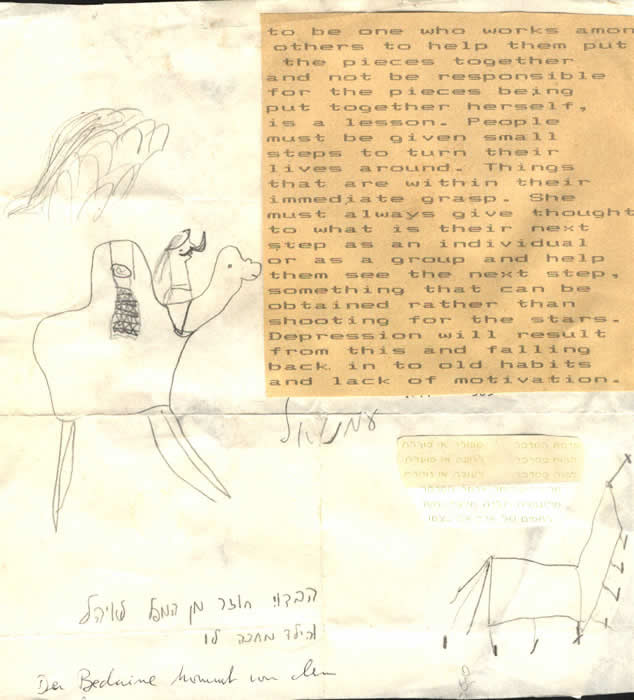 to be one who works amon
others to help them put
the pieces together
and not be responsible
for the pieces being
put together herself,
is a lesson. People
must be given small
steps to turn their
lives around. Things
that are within their
immediate grasp. She
must always give thought
to what is their next
step as an individual
or as a group and help
them see the next step,
something that can be
obtained rather than
shooting for the stars.
Depression will result
from this and falling
back in to old habits
and lack of motivation.
עמנואל
הבדוי חוזר מן לאוהל
הילד מחכה לו
Der Beduine kommt von dem